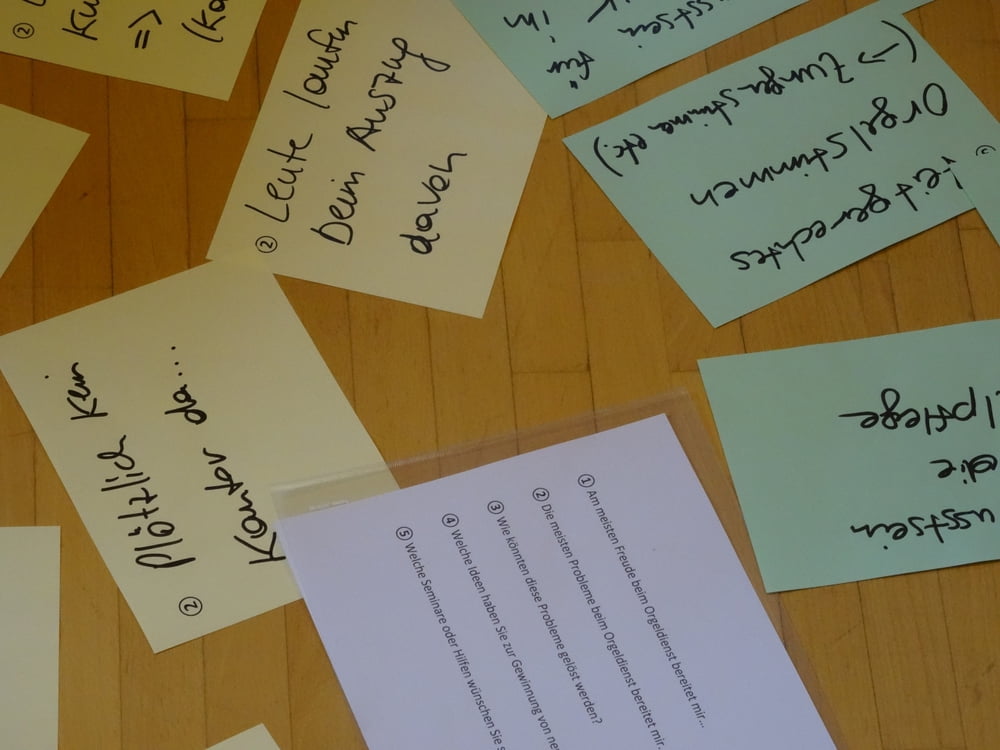 ②
Ku
=>
(Ka
② Leute laufen
beim Auszug
davon
② Plötzlich kein
Kantor da...
für
im
Zeitgerechtes
Orgelstimmen
(-> Zungenstimmen etc.)
usstsein
die
lpflege
① Am meisten Freude beim Orgeldienst bereitet mir...
② Die meisten Probleme beim Orgeldienst bereitet mir.
③ Wie könnten diese Probleme gelöst werden?
④ Welche Ideen haben Sie zur Gewinnung von ne
⑤ Welche Seminare oder Hilfen wünschen Sie s